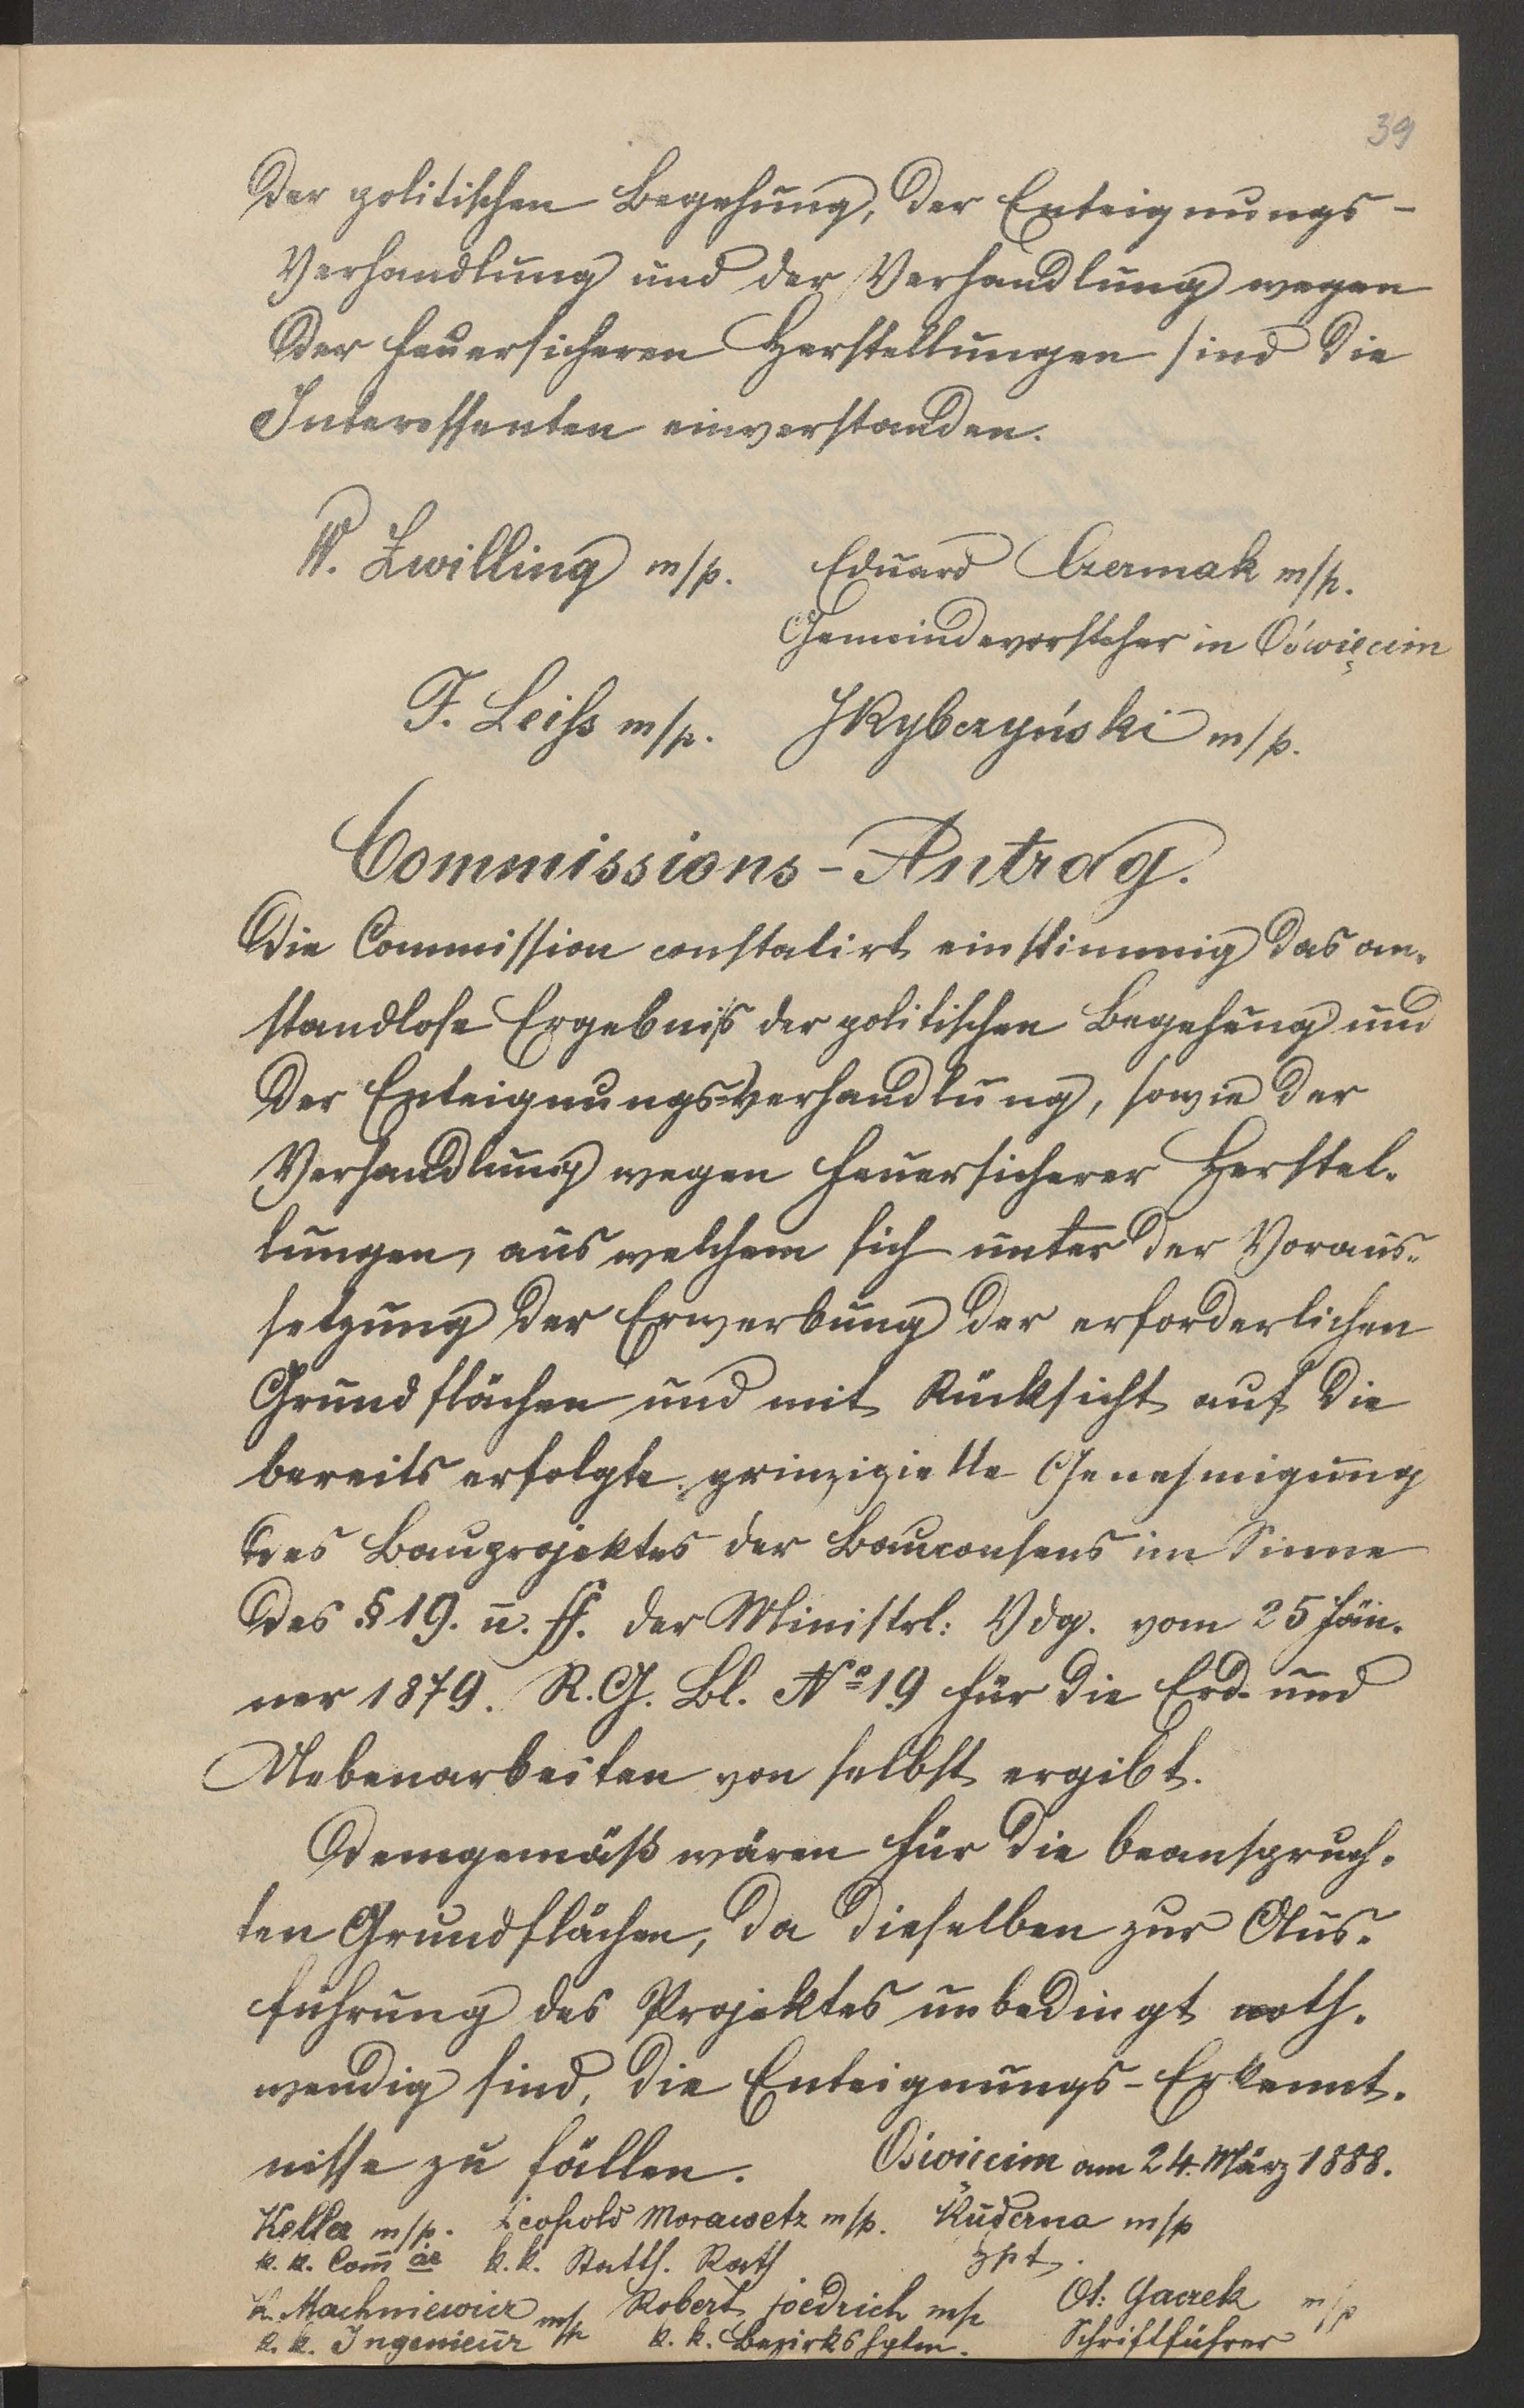 39
der politischen Begehung, der Enteignungs-
Verhandlung und der Verhandlung wegen
der feuersicheren Herstellungen sind die
Interessenten einverstanden.
W. Zwilling m/p. Eduard Czermak m/p.
Gemeindevorsteher in Oświęcim
F. Leiss m/p. JRybczyński m/p.
Commissions-Antrag.
Die Commission constatirt einstimmig das an-
standlose Ergebniß der politischen Begehung und
der Enteignungsverhandlung, sowie der
Verhandlung wegen feuersicherer Herstel-
lungen, aus welchem sich unter der Voraus-
setzung der Erwerbung der erforderlichen
Grundflächen und mit Rücksicht auf die
bereits erfolgte prinzipielle Genehmigung
des Bauprojektes der Bauconsens im Sinne
des § 19. u. ff. der Ministrl: Vdg. vom 25 Jän-
ner 1879. R. G. Bl. No 19 für die Erd- und
Nebenarbeiten von selbst ergibt.
Demgemäß wären für die beanspruch-
ten Grundflächen, da dieselben zur Aus-
führung des Projektes unbedingt noth-
wendig sind, die Enteignungs-Erkennt-
nisse zu fällen. Oświęcim am 24. März 1888.
Keller m/p. Leopold Morawetz m/p. Kuderna m/p
k. k. Com̅är k. k. Statth. Rath Hpt.
K. Machniewicz m/p Robert Joedrich m/p Ot: Gaczek m/p
k. k. Ingenieur k. k. Bezirkshptm. Schriftführer